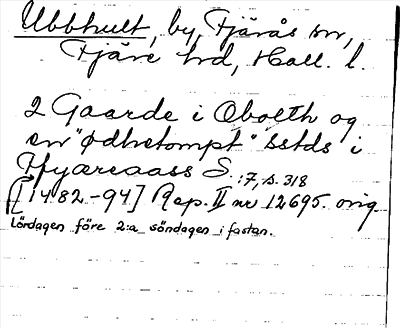 Ubbhult, by, Fjärås sn,
Fjäre hd, Hall. l.
2 Gaarde i Obolth og
en "Ødhetompt" sstds i
Ffyæreaass S. :7, s. 318
[1482-94] Rep. II nr 12695. orig.
Lördagen före 2:a söndagen i fastan.